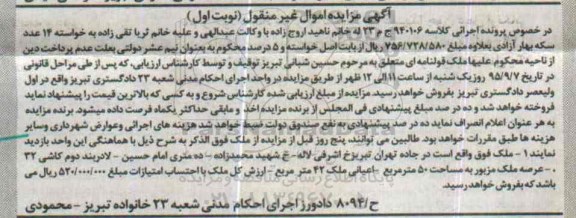 آگهی مزایده اموال غیر منقول (نوبت اول)
در خصوص پرونده اجرائی کلاسه ۹۴۰۱۰۶ ج م ۲۳ له خانم ناهید اروج زاده با وکالت عبدالهی و علیه خانم ثریا تقی زاده به خواسته ۱۴ عدد
سکه بهار آزادی بعلاوه مبلغ ۷۵۶/۷۳۸/۵۸۰ ریال از بابت اصل خواسته و ۵ درصد محکوم به بعنوان نیم عشر دولتی بعلت عدم پرداخت دین
از ناحیه محکوم علیها ملک قولنامه ای متعلق به مرحوم حسین شبانی تبریز توقیف و توسط کارشناس ارزیابی، که پس از طی مراحل قانونی
در تاریخ ۹۵/۹/۷ روز یک شنبه از ساعت ۱۱ الی ۱۲ ظهر از طریق مزایده در واحد اجرای احکام مدنی شعبه ۲۳ دادگستری تبریز واقع در اول
ولیعصر دادگستری تبریز بفروش خواهد رسید. مزایده از مبلغ ارزیابی شده کارشناس شروع و به کسی که بالاترین قیمت را پیشنهاد نماید
فروخته خواهد شد و ده در صد مبلغ پیشنهادی فی المجلس از برنده مزایده اخذ و مابقی حداکثر یکماه فرصت داده میشود. برنده مزایده
به هر عنوان اعلام انصراف نماید ده در صد پیشنهادی به نفع صندوق دولت ضبط خواهد شد. هزینه های اجرائی و عوارض شهرداری و سایر
هزینه ها طبق مقررات خواهد بود. طالبین می توانند، پنج روز قبل از مزایده از ملک فوق الذکر به شرح ذیل با هماهنگی این واحد بازدید
نمایند ۱ - ملک فوق واقع است در جاده تهران تبریز خ اشرفی لاله - خ شهید محمدزاده - ده متری امام حسین - لادربند دوم کاشی ۳۲
. - عرصه ملک مزبور به مساحت ۵۰ مترمربع - اعیانی ملک ۴۲ متر مربع - ارزش کل ملک با احتساب امتیازات مبلغ ۵۲۰/۰۰۰/۰۰۰ ریال می
باشد که بفروش خواهد رسید.
ح/۸۰۹۴ دادورز اجرای احکام مدنی شعبه ۲۳ خانواده تبریز - محمودی